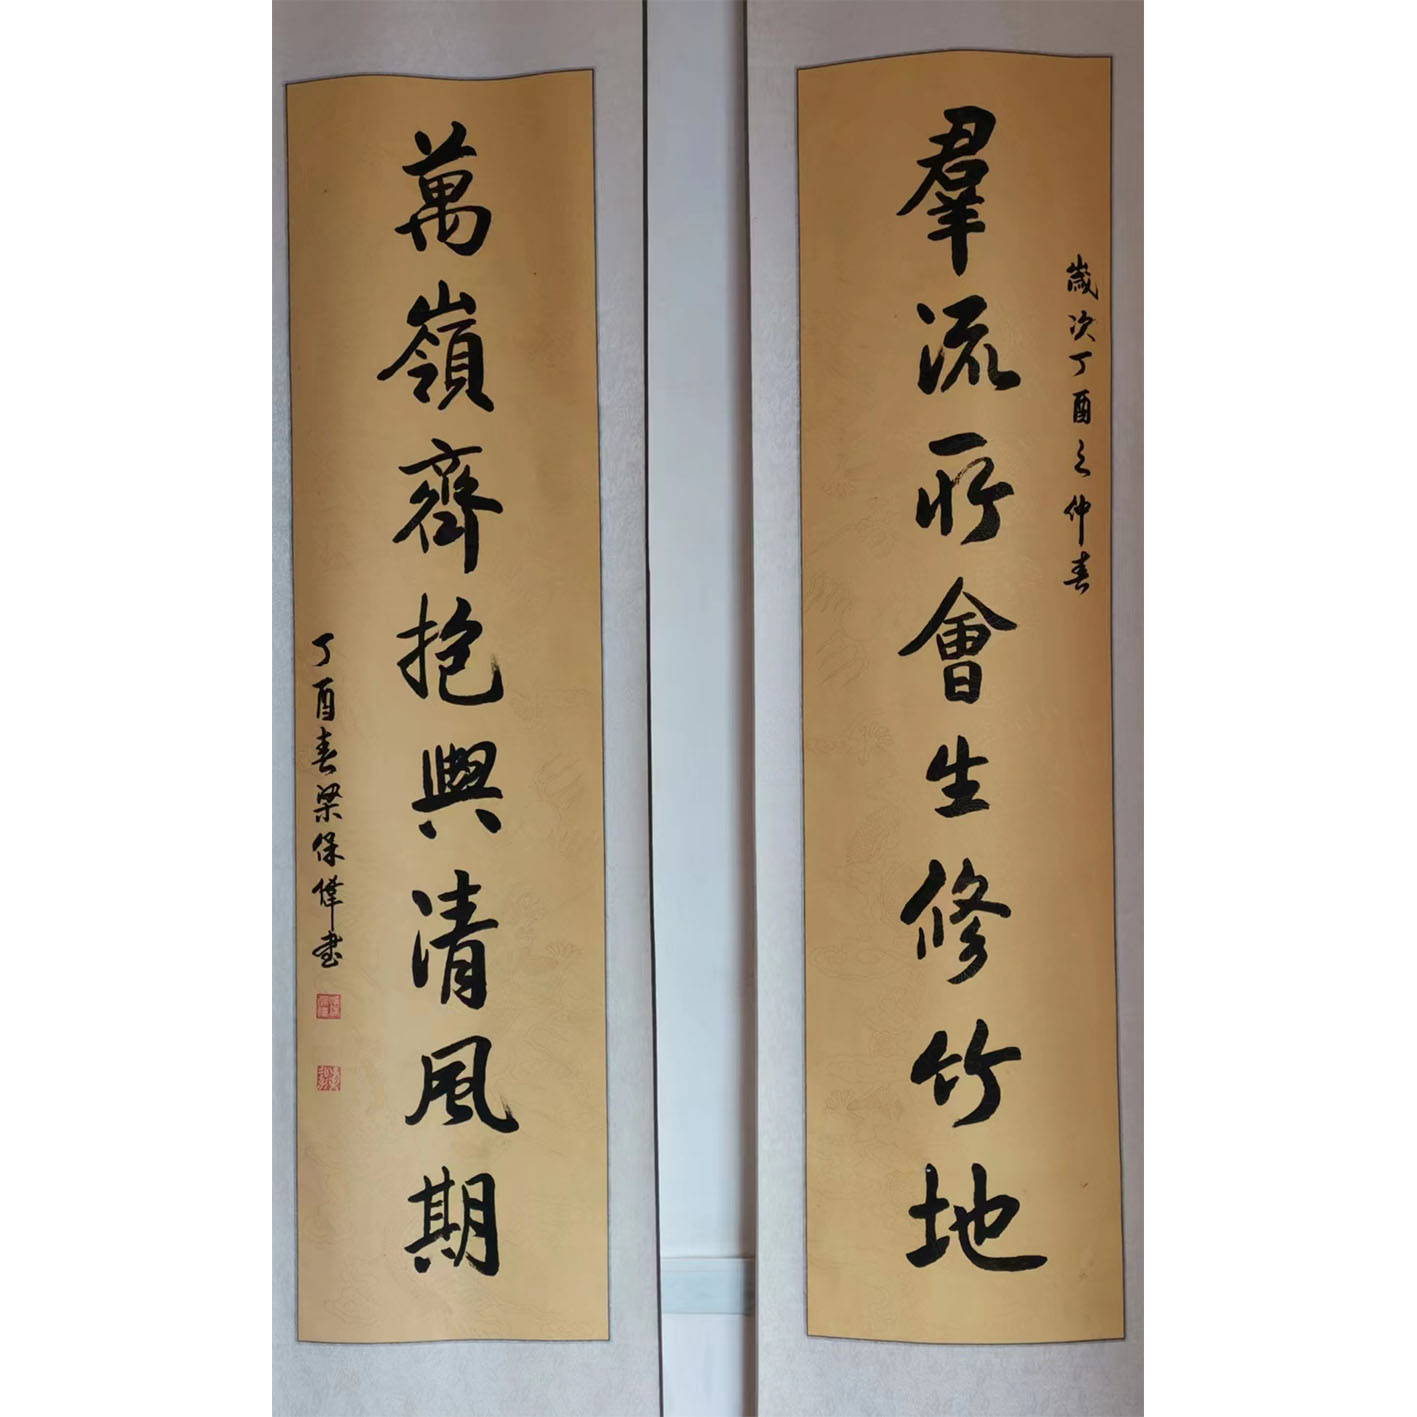 歲次丁酉之仲春
羣流所會生修竹地
萬嶺齊抱與清風期
丁酉春梁保偉書